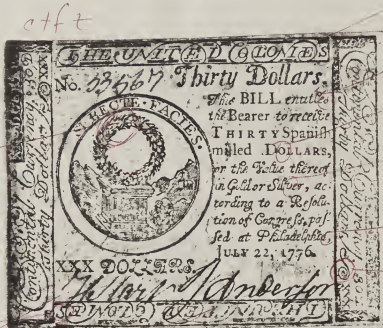 c+f z
THE UNITED COLONIES
No. 03567 Thirty Dollars.
This BILL entitles
the Bearer to receive
THIRTY Spanish
milled DOLLARS,
or the Value thereof
in Gold or Silver, ac-
cording to a Resolu-
tion of Congress, pas-
sed at Philadelphia,
JULY 22, 1776.
SI RECTE FACIES.
XXX DOLLARS.
THE UNITED COLONIES
Continental Currency
Thirty Dollars